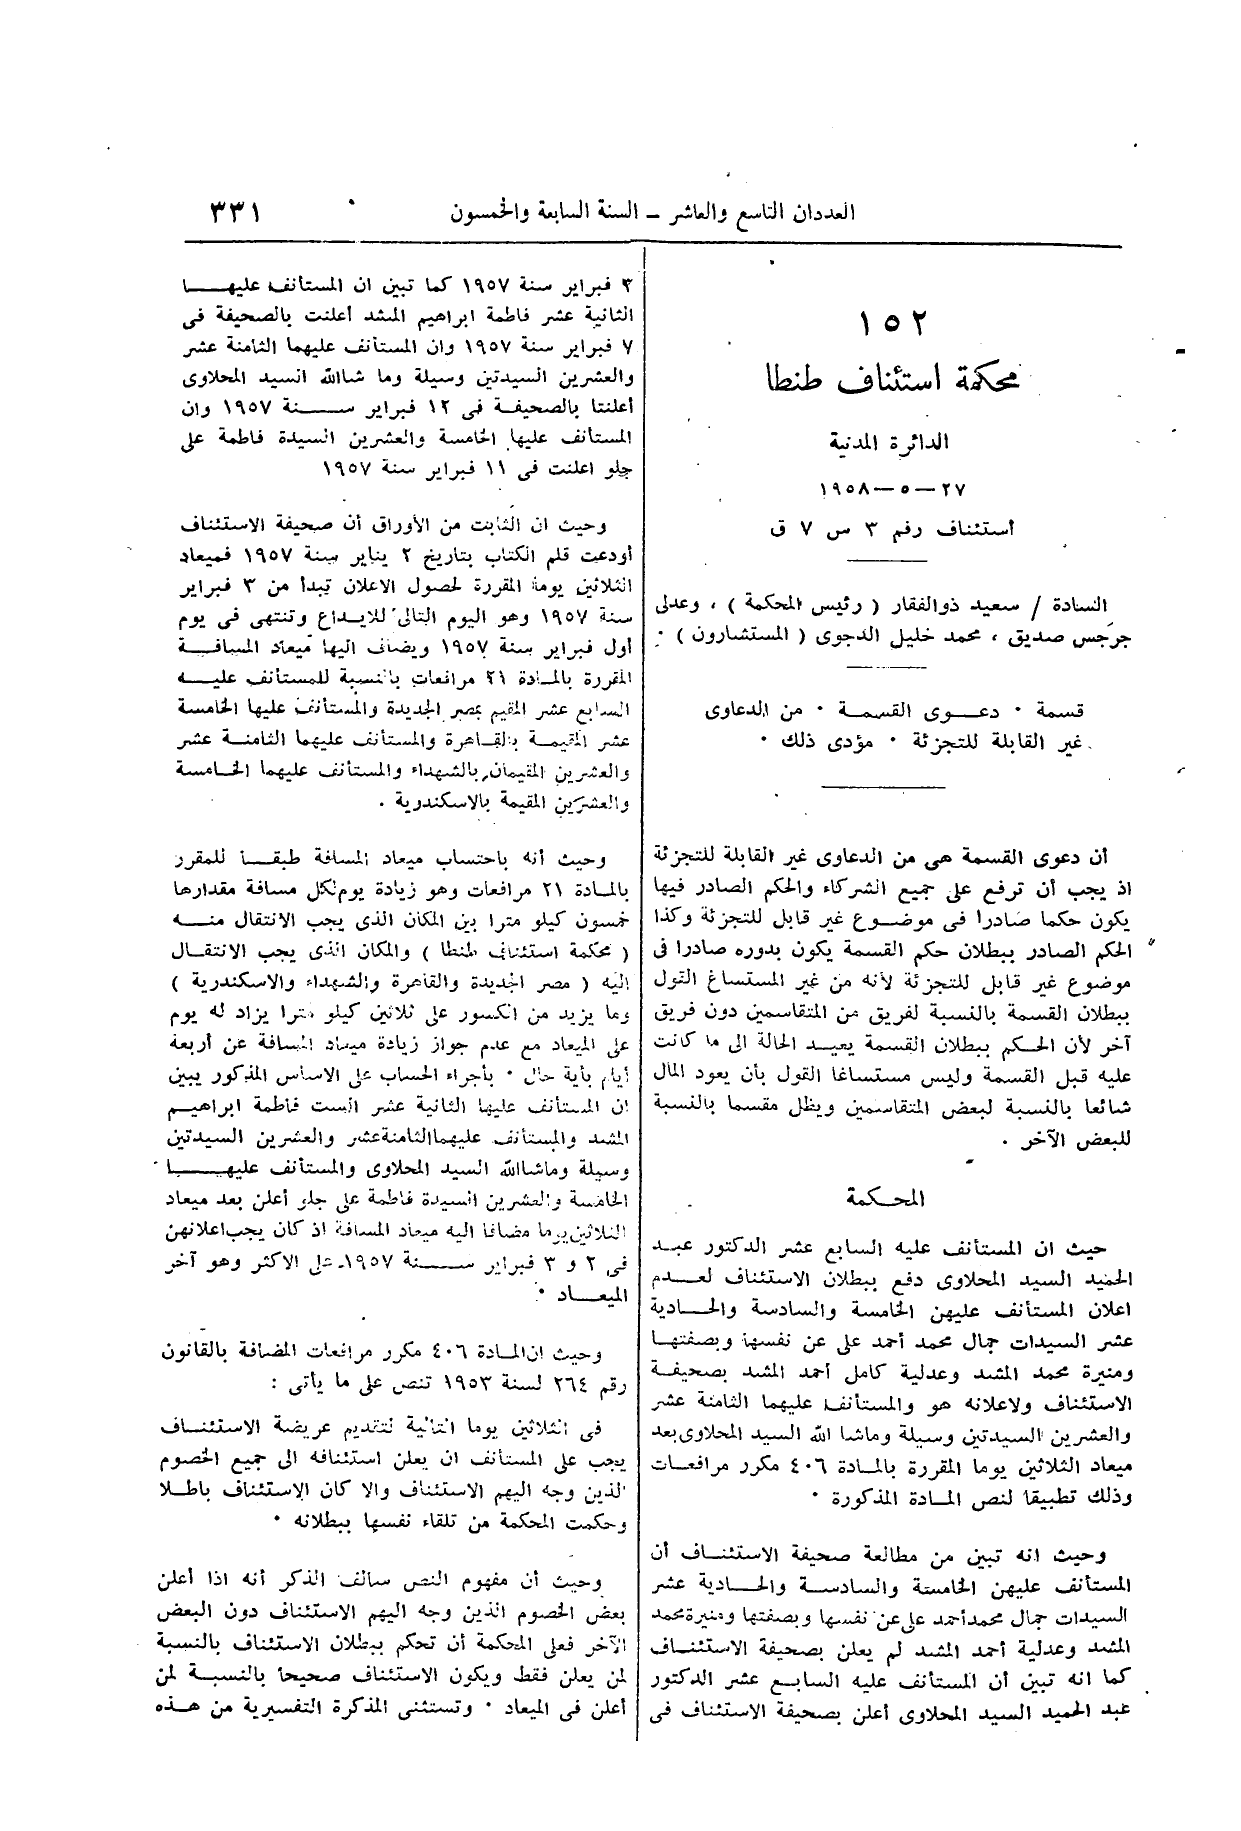 العددان التاسع والعاشر – السنة السابعة والخمسون
٣٣١
١٥٢
محكمة استئناف طنطا
الدائرة المدنية
٢٧ – ٥ – ١٩٥٨
استئناف رقم ٣ س ٧ ق
السادة / سعيد ذوالفقار ( رئيس المحكمة ) ، وعدلى
جرجس صديق ، محمد خليل الدجوى ( المستشارون ) ٠
قسمة ٠ دعوى القسمة ٠ من الدعاوى
غير القابلة للتجزئة ٠ مؤدى ذلك ٠
أن دعوى القسمة هى من الدعاوى غير القابلة للتجزئة
اذ يجب أن ترفع على جميع الشركاء والحكم الصادر فيها
يكون حكما صادرا فى موضوع غير قابل للتجزئة وكذا
الحكم الصادر ببطلان حكم القسمة يكون بدوره صادرا فى
موضوع غير قابل للتجزئة لأنه من غير المستساغ القول
ببطلان القسمة بالنسبة لفريق من المتقاسمين دون فريق
آخر لأن الحكم ببطلان القسمة يعيد الحالة الى ما كانت
عليه قبل القسمة وليس مستساغا القول بأن يعود المال
شائعا بالنسبة لبعض المتقاسمين ويظل مقسما بالنسبة
للبعض الآخر .
المحكمة
حيث ان المستأنف عليه السابع عشر الدكتور عبد
الحميد السيد المحلاوى دفع ببطلان الاستئناف لعدم
اعلان المستأنف عليهن الخامسة والسادسة والحادية
عشر السيدات جمال محمد أحمد على عن نفسها وبصفتها
ومنيرة محمد المشد وعدلية كامل أحمد المشد بصحيفة
الاستئناف ولاعلانه هو والمستأنف عليهما الثامنة عشر
والعشرين السيدتين وسيلة وماشا الله السيد المحلاوى بعد
ميعاد الثلاثين يوما المقررة بالمادة ٤٠٦ مكرر مرافعات
وذلك تطبيقا لنص المادة المذكورة ٠
وحيث انه تبين من مطالعة صحيفة الاستئناف أن
المستأنف عليهن الخامسة والسادسة والحادية عشر
السيدات جمال محمد أحمد على عن نفسها وبصفتها ومنيرة محمد
المشد وعدلية أحمد المشد لم يعلن بصحيفة الاستئناف
كما انه تبين أن المستأنف عليه السابع عشر الدكتور
عبد الحميد السيد المحلاوى أعلن بصحيفة الاستئناف فى
٣ فبراير سنة ١٩٥٧ كما تبين ان المستأنف عليها
الثانية عشر فاطمة ابراهيم المشد أعلنت بالصحيفة فى
٧ فبراير سنة ١٩٥٧ وان المستأنف عليهما الثامنة عشر
والعشرين السيدتين وسيلة وما شاالله السيد المحلاوى
أعلنتا بالصحيفة فى ١٢ فبراير سنة ١٩٥٧ وان
المستأنف عليها الخامسة والعشرين السيدة فاطمة على
جلو اعلنت فى ١١ فبراير سنة ١٩٥٧
وحيث ان الثابت من الأوراق أن صحيفة الاستئناف
أودعت قلم الكتاب بتاريخ ٢ يناير سنة ١٩٥٧ فميعاد
الثلاثين يوما المقررة لحصول الاعلان تبدأ من ٣ فبراير
سنة ١٩٥٧ وهو اليوم التالى للايداع وتنتهى فى يوم
أول فبراير سنة ١٩٥٧ ويضاف اليها ميعاد المسافة
المقررة بالمادة ٢١ مرافعات بالنسبة للمستأنف عليه
السابع عشر المقيم بمصر الجديدة والمستأنف عليها الخامسة
عشر المقيمة بالقاهرة والمستأنف عليهما الثامنة عشر
والعشرين المقيمان بالشهداء والمستأنف عليهما الخامسة
والعشرين المقيمة بالاسكندرية .
وحيث أنه باحتساب ميعاد المسافة طبقا للمقرر
بالمادة ٢١ مرافعات وهو زيادة يوم لكل مسافة مقدارها
خمسون كيلو مترا بين المكان الذى يجب الانتقال منه
( محكمة استئناف طنطا ) والمكان الذى يجب الانتقال
اليه ( مصر الجديدة والقاهرة والشهداء والاسكندرية )
وما يزيد من الكسور على ثلاثين كيلو مترا يزاد له يوم
على الميعاد مع عدم جواز زيادة ميعاد المسافة عن أربعة
أيام بأية حال ٠ بأجراء الحساب على الاساس المذكور يبين
ان المستأنف عليها الثانية عشر الست فاطمة ابراهيم
المشد والمستأنف عليهما الثامنة عشر والعشرين السيدتين
وسيلة وماشاالله السيد المحلاوى والمستأنف عليها
الخامسة والعشرين السيدة فاطمة على جلو أعلن بعد ميعاد
الثلاثين يوما مضافا اليه ميعاد المسافة اذ كان يجب اعلانهن
فى ٢ و ٣ فبراير سنة ١٩٥٧ على الاكثر وهو آخر
الميعاد ٠
وحيث ان المادة ٤٠٦ مكرر مرافعات المضافة بالقانون
رقم ٢٦٤ لسنة ١٩٥٣ تنص على ما يأتى :
فى الثلاثين يوما التالية لتقديم عريضة الاستئناف
يجب على المستأنف ان يعلن استئنافه الى جميع الخصوم
الذين وجه اليهم الاستئناف والا كان الاستئناف باطلا
وحكمت المحكمة من تلقاء نفسها ببطلانه ٠
وحيث أن مفهوم النص سالف الذكر أنه اذا أعلن
بعض الخصوم الذين وجه اليهم الاستئناف دون البعض
الآخر فعلى المحكمة أن تحكم ببطلان الاستئناف بالنسبة
لمن يعلن فقط ويكون الاستئناف صحيحا بالنسبة لمن
أعلن فى الميعاد ٠ وتستثنى المذكرة التفسيرية من هذه